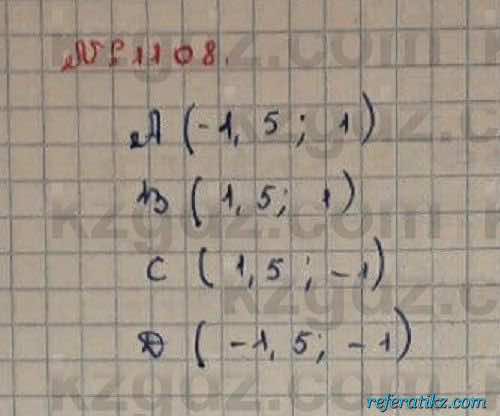 № 1108.
A (-1,5; 1)
B (1,5; 1)
C (1,5; -1)
D (-1,5; -1)
referatikz.com